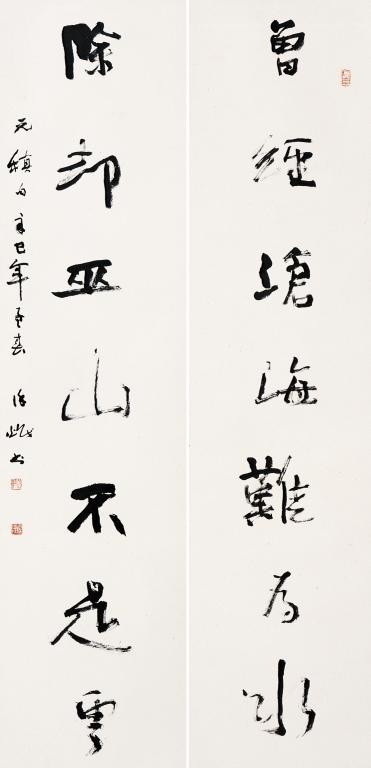 曾經滄海難為水
除却巫山不是雲
元稹句辛巳年孟春
书